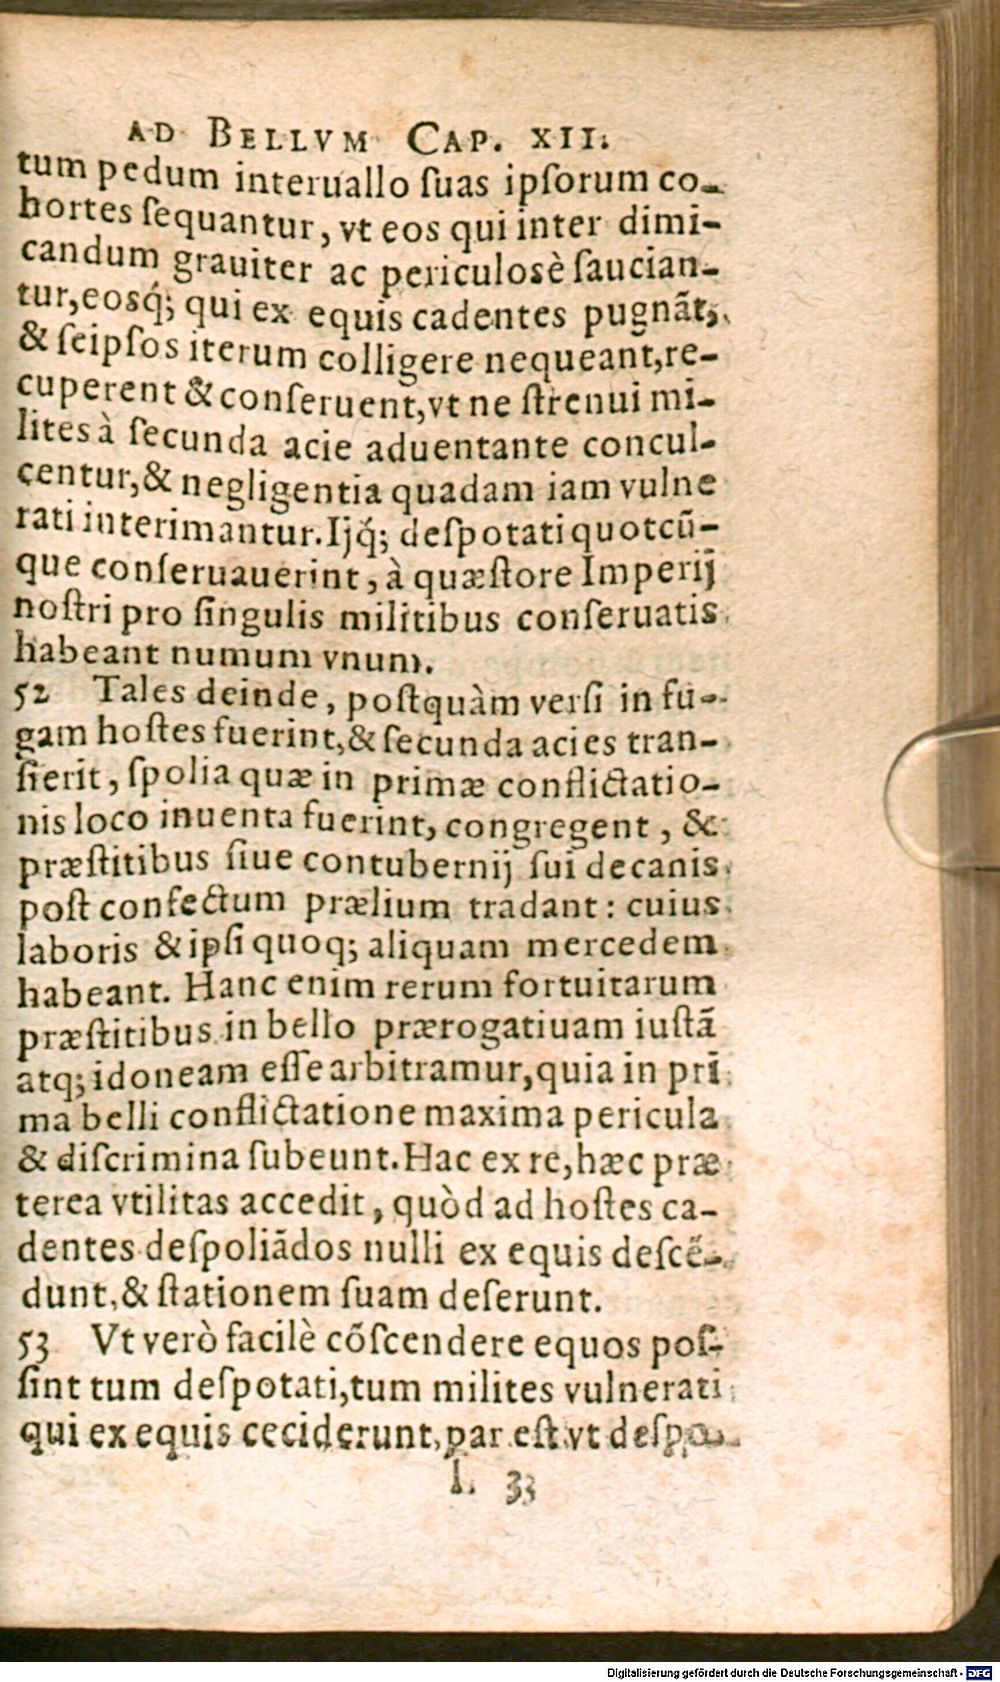 AD BELLVM CAP. XII.
tum pedum interuallo ſuas ipſorum co-
hortes ſequantur, vt eos qui inter dimi-
candum grauiter ac periculosè ſaucian-
tur, eosq́; qui ex equis cadentes pugnãt,
& ſeipſos iterum colligere nequeant, re-
cuperent & conſeruent, vt ne ſtrenui mi-
lites à ſecunda acie aduentante concul-
centur, & negligentia quadam iam vulne
rati interimantur. Ijq́; deſpotati quotcũ-
que conſeruauerint, à quæſtore Imperij
noſtri pro ſingulis militibus conſeruatis
habeant numum vnum.
52 Tales deinde, poſtquàm verſi in fu-
gam hoſtes fuerint, & ſecunda acies tran-
ſierit, ſpolia quæ in primæ conflictatio-
nis loco inuenta fuerint, congregent, &
præſtitibus ſiue contubernij ſui decanis
poſt confectum prælium tradant: cuius
laboris & ipſi quoq; aliquam mercedem
habeant. Hanc enim rerum fortuitarum
præſtitibus in bello prærogatiuam iuſtã
atq; idoneam eſſe arbitramur, quia in prĩ
ma belli conflictatione maxima pericula
& diſcrimina ſubeunt. Hac ex re, hæc præ
terea vtilitas accedit, quòd ad hoſtes ca-
dentes deſpoliãdos nulli ex equis deſcẽ-
dunt, & ſtationem ſuam deſerunt.
53 Vt verò facilè cõſcendere equos poſ-
ſint tum deſpotati, tum milites vulnerati
qui ex equis ceciderunt, par eſt vt deſpo-
L 33
Digitalisierung gefördert durch die Deutsche Forschungsgemeinschaft - DFG